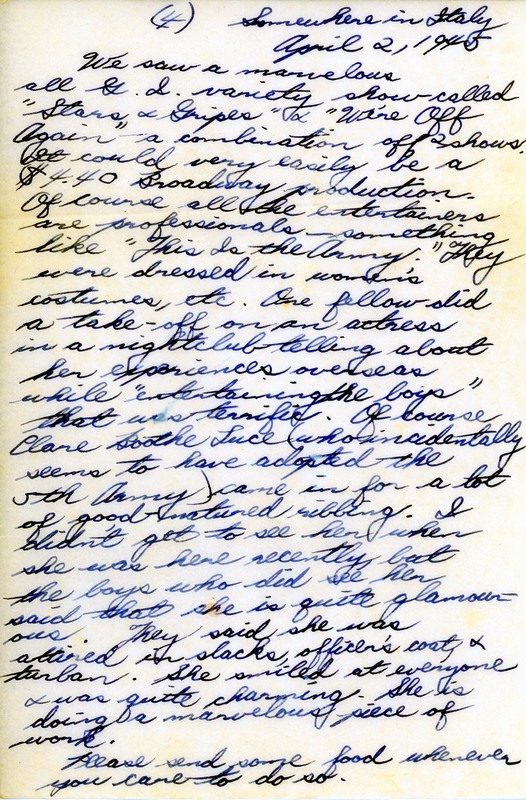 (4) Somewhere in Italy
April 2, 1945
We saw a marvelous
all G. I. variety show called
"Stars & Gripes" & "We're Off
Again" - a combination of 2 shows.
It could very easily be a
$4.40 Broadway production.
Of course all the entertainers
are professionals - something
like "This Is the Army." They
were dressed in women's
costumes, etc. One fellow did
a take-off on an actress
in a nightclub telling about
her experiences overseas
while "entertaining the boys"
that was terrific. Of course
Clare Boothe Luce (who incidentally
seems to have adopted the
5th Army) came in for a lot
of good-natured ribbing. I
didn't get to see her when
she was here recently but
the boys who did see her
said that she is quite glamour-
ous. They said she was
attired in slacks, officer's coat, &
turban. She smiled at everyone
& was quite charming. She is
doing a marvelous piece of
work.
Please send some food whenever
you care to do so.